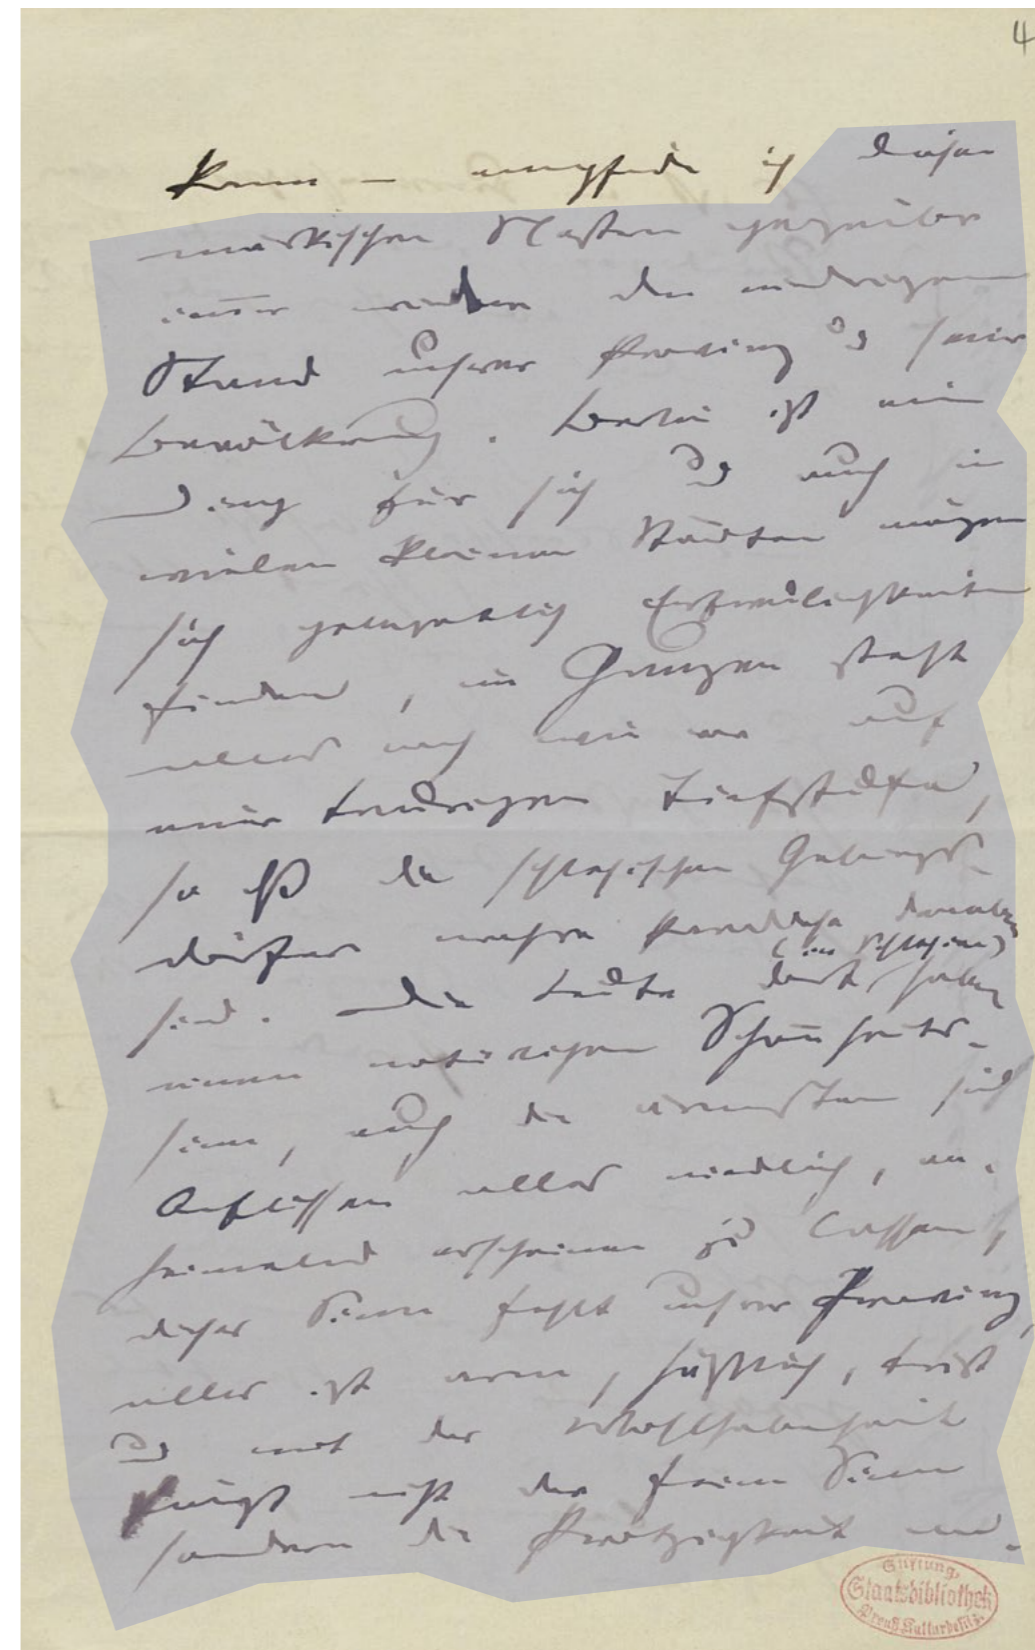 4
kann – empfinde ich diesen
märkischen Nestern gegenüber
immer wieder den niedrigen
Stand unsrer Provinz und seiner
Bevölkerung. Berlin ist ein
Ding für sich und auch in
vielen kleinen Städten mögen
sich gelegentlich Erfreulichkeiten
finden, im Ganzen steht
alles noch wie vor auf
einer traurigen Tiefstufe,
so daß die schlesischen Gebirgs-
dörfer wahre Paradiese daneben
(in Schlesien)
sind. Die Leute dort haben
einen natürlichen Schönheits-
sinn, auch die ärmsten sind
beflissen alles niedlich, an-
heimelnd erscheinen zu lassen,
dieser Sinn fehlt unsrer Provinz,
alles ist arm, häßlich, trist
und mit der Wohlhabenheit
steigt nicht der feine Sinn
sondern die Protzigkeit und
Stiftung
Staatsbibliothek
Preuß. Kulturbesitz